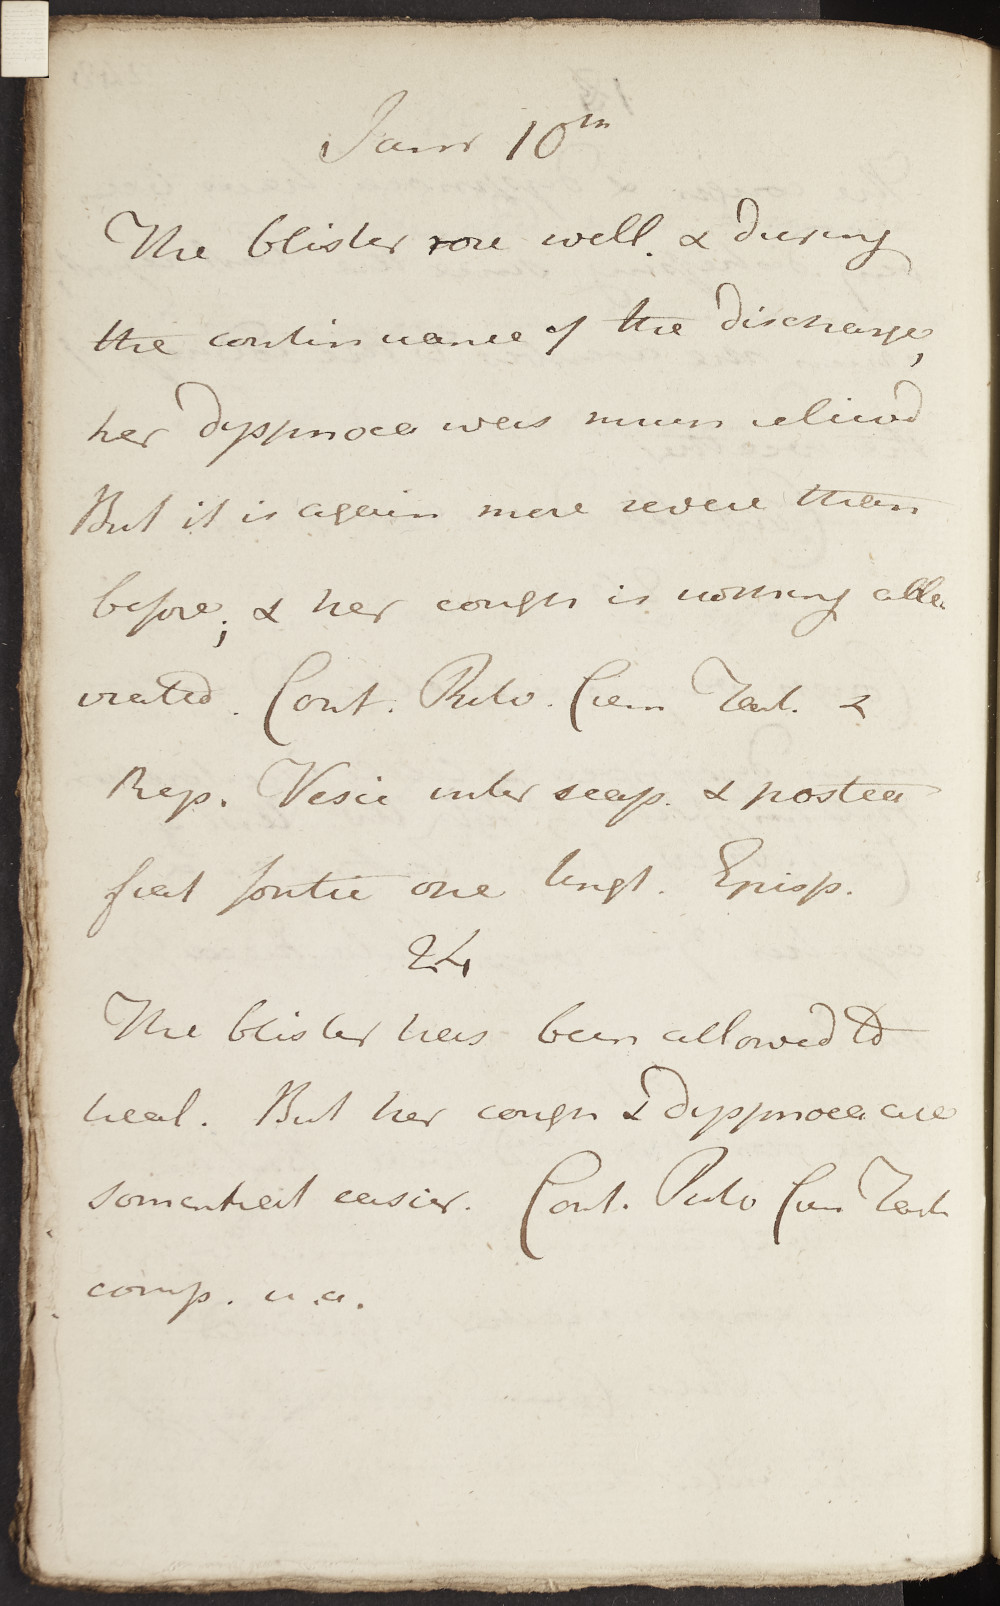 Janr 10th
The blister rose well. & during
the continuance of the discharge,
her dyspnoea was much relieved
But it is again more severe than
before; & her cough is nothing alle
viated. Cont. Pulv. Crem Tart. &
Rep. Vesic inter scap. & postea
fiat fontic ope Ungt. Episp.
24
The blister has been allowed to
heal. But her cough & dyspnoea are
somewhat easier. Cont. Pulv Crem Tart
comp. u.a.